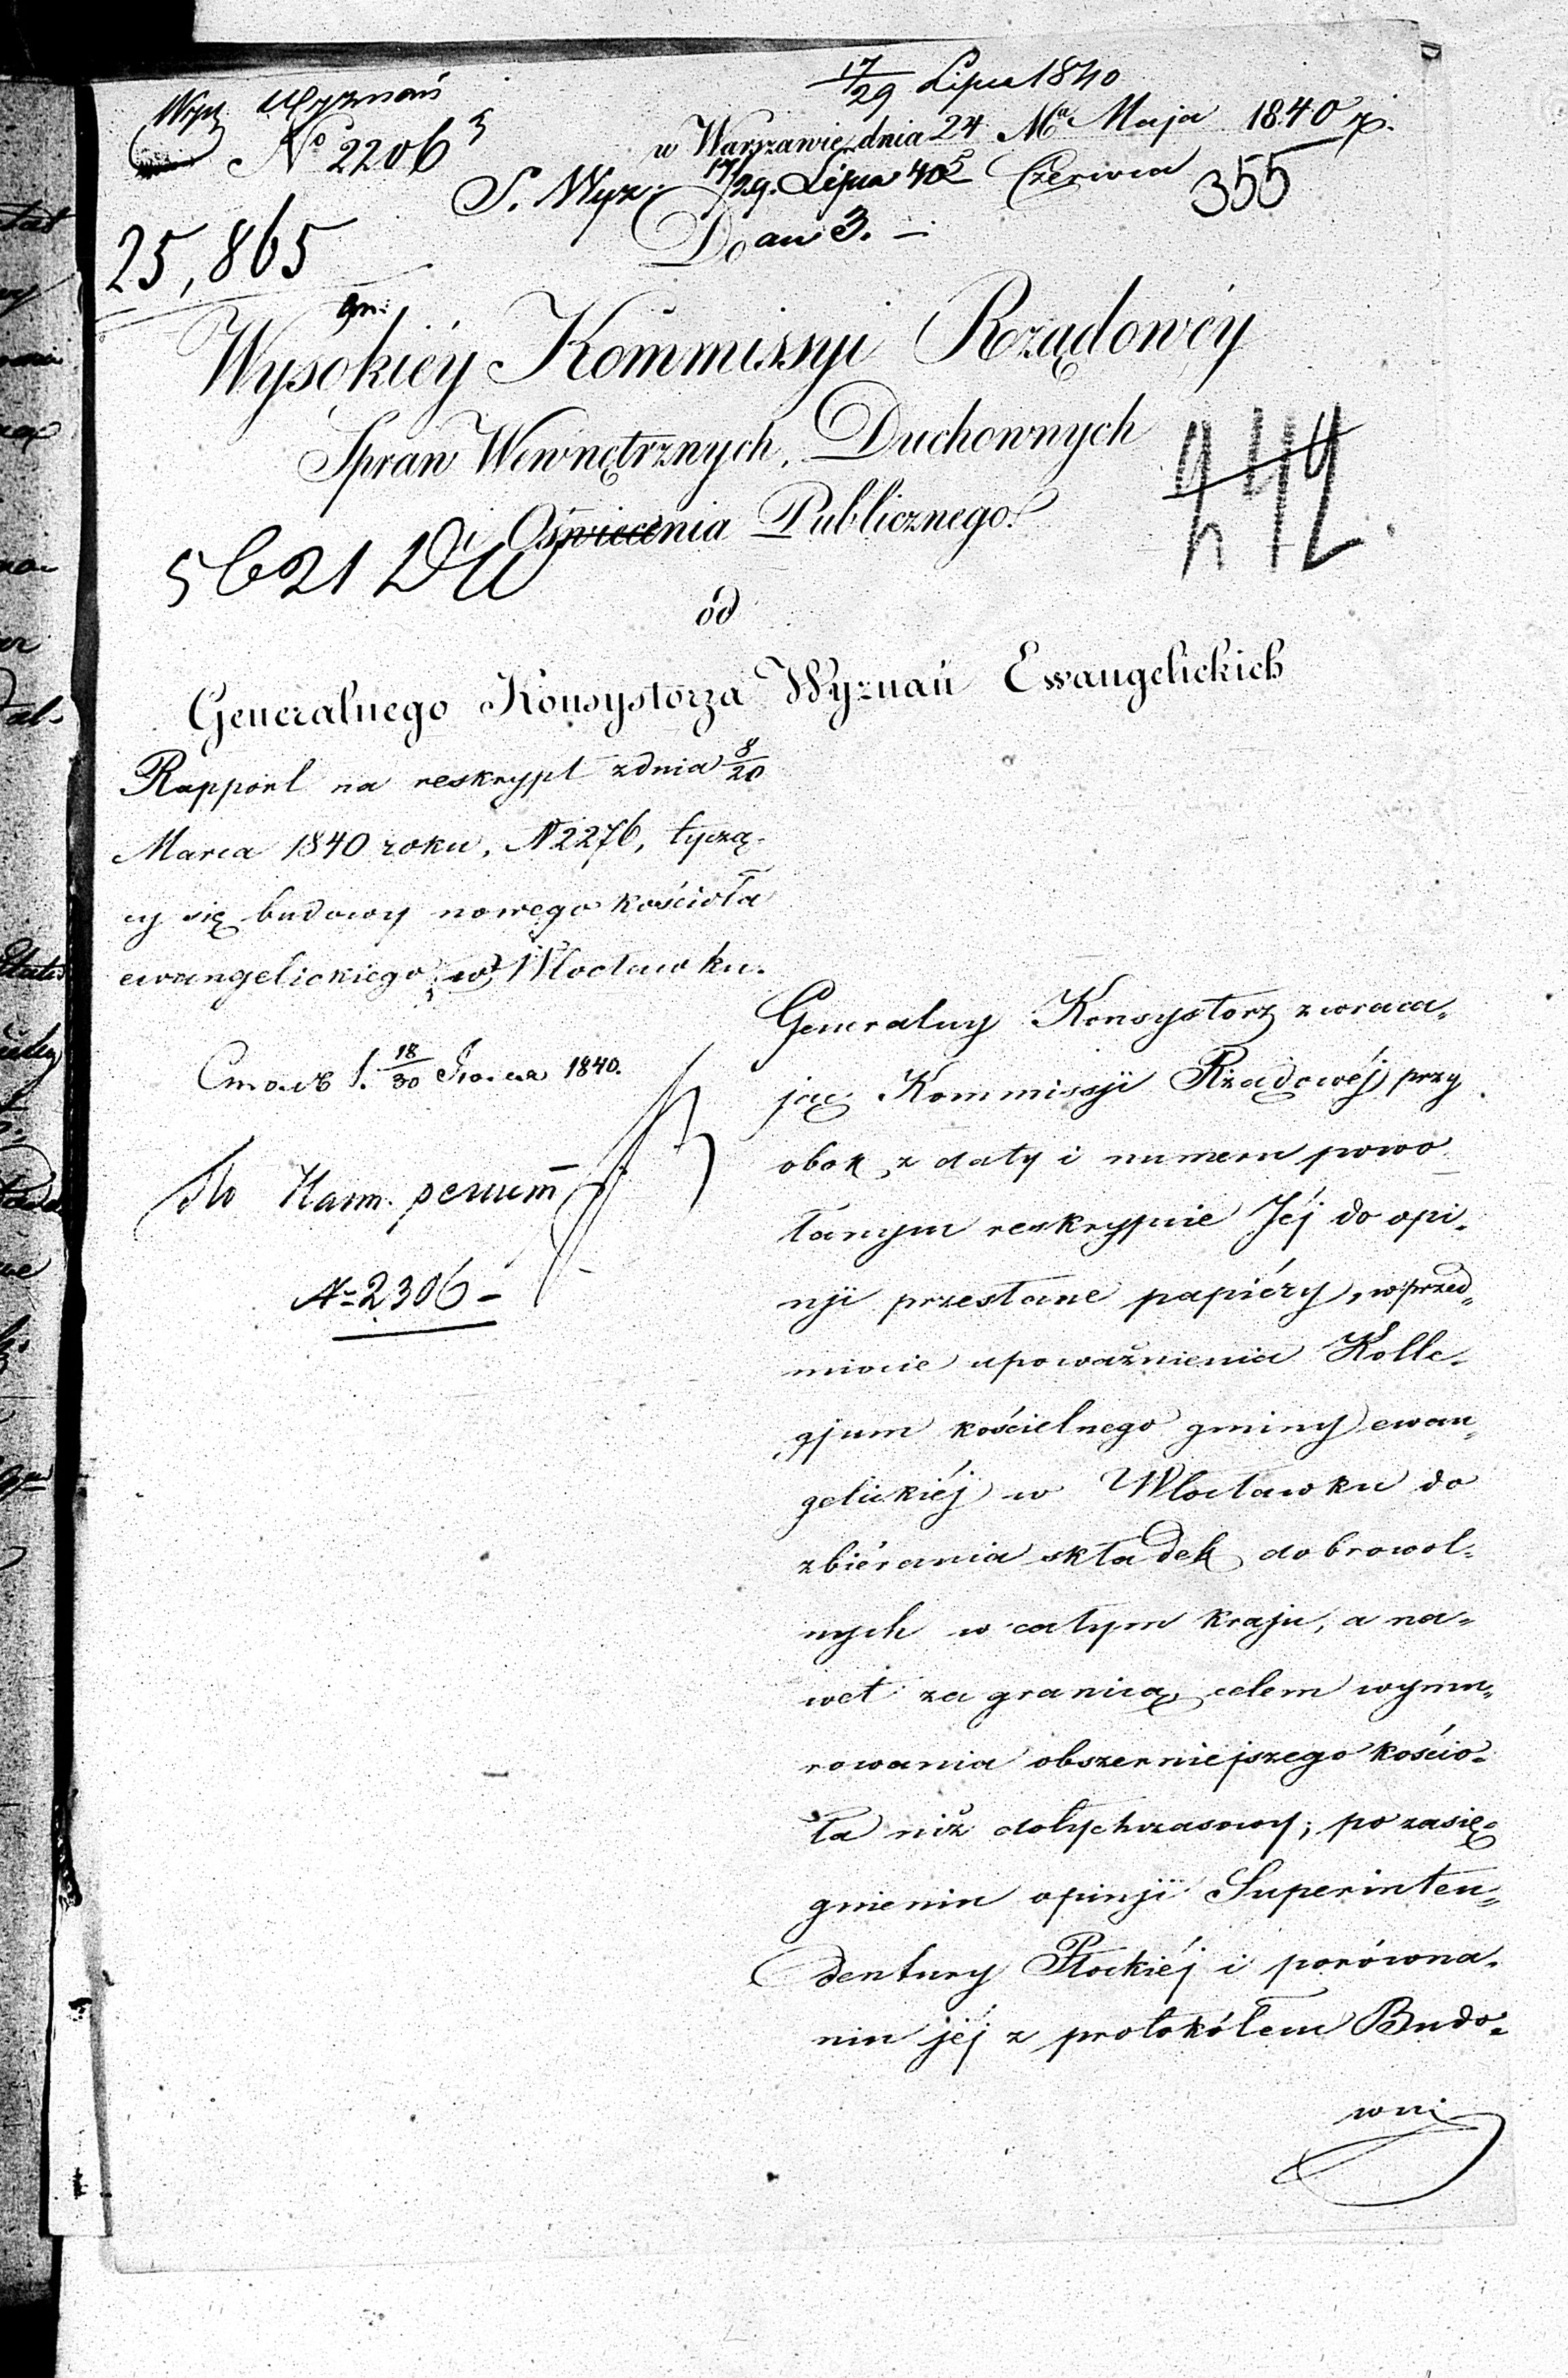 17/29 Lipca 1840
Wyzń
Wydz Wyznań
w Warszawie dnia 24 Maja 1840 r.
5 Czerwca
No 2206
S. Wyz. 17/29 Lipca 40
355
Do
25,865
Wysokiéy Kommissyi Rządowéy
Spraw Wewnętrznych, Duchownych
i Oświecenia Publicznego.
5621
442
od
Generalnego Konsystorza Wyznań Ewangelickich
Rapport na reskrypt z dnia 8/20
Marca 1840 roku, N 2276, tyczą-
cy się budowy nowego kościoła
ewangelickiego w Włocławku.
18/30 1840.
No 2306
Generalny Konsystorz zwraca-
jąc Kommissji Rządowéj przy
obok z daty i numeru powo-
łanym reskrypcie Jéj do opi-
nji przesłane papiéry, w przed-
miocie upoważnienia Kolle-
gjum kościelnego gminy ewan-
gelickiéj w Włocławku do
zbiérania składek dobrowol-
nych w całym kraju, a na-
wet za granicą, celem wymu-
rowania obszerniejszego kościo-
ła niż dotychczasowy; po zasię-
gnieniu opinji Superinten-
dentury Płockiéj i porówna-
niu jéj z protokółem Budo-
wni